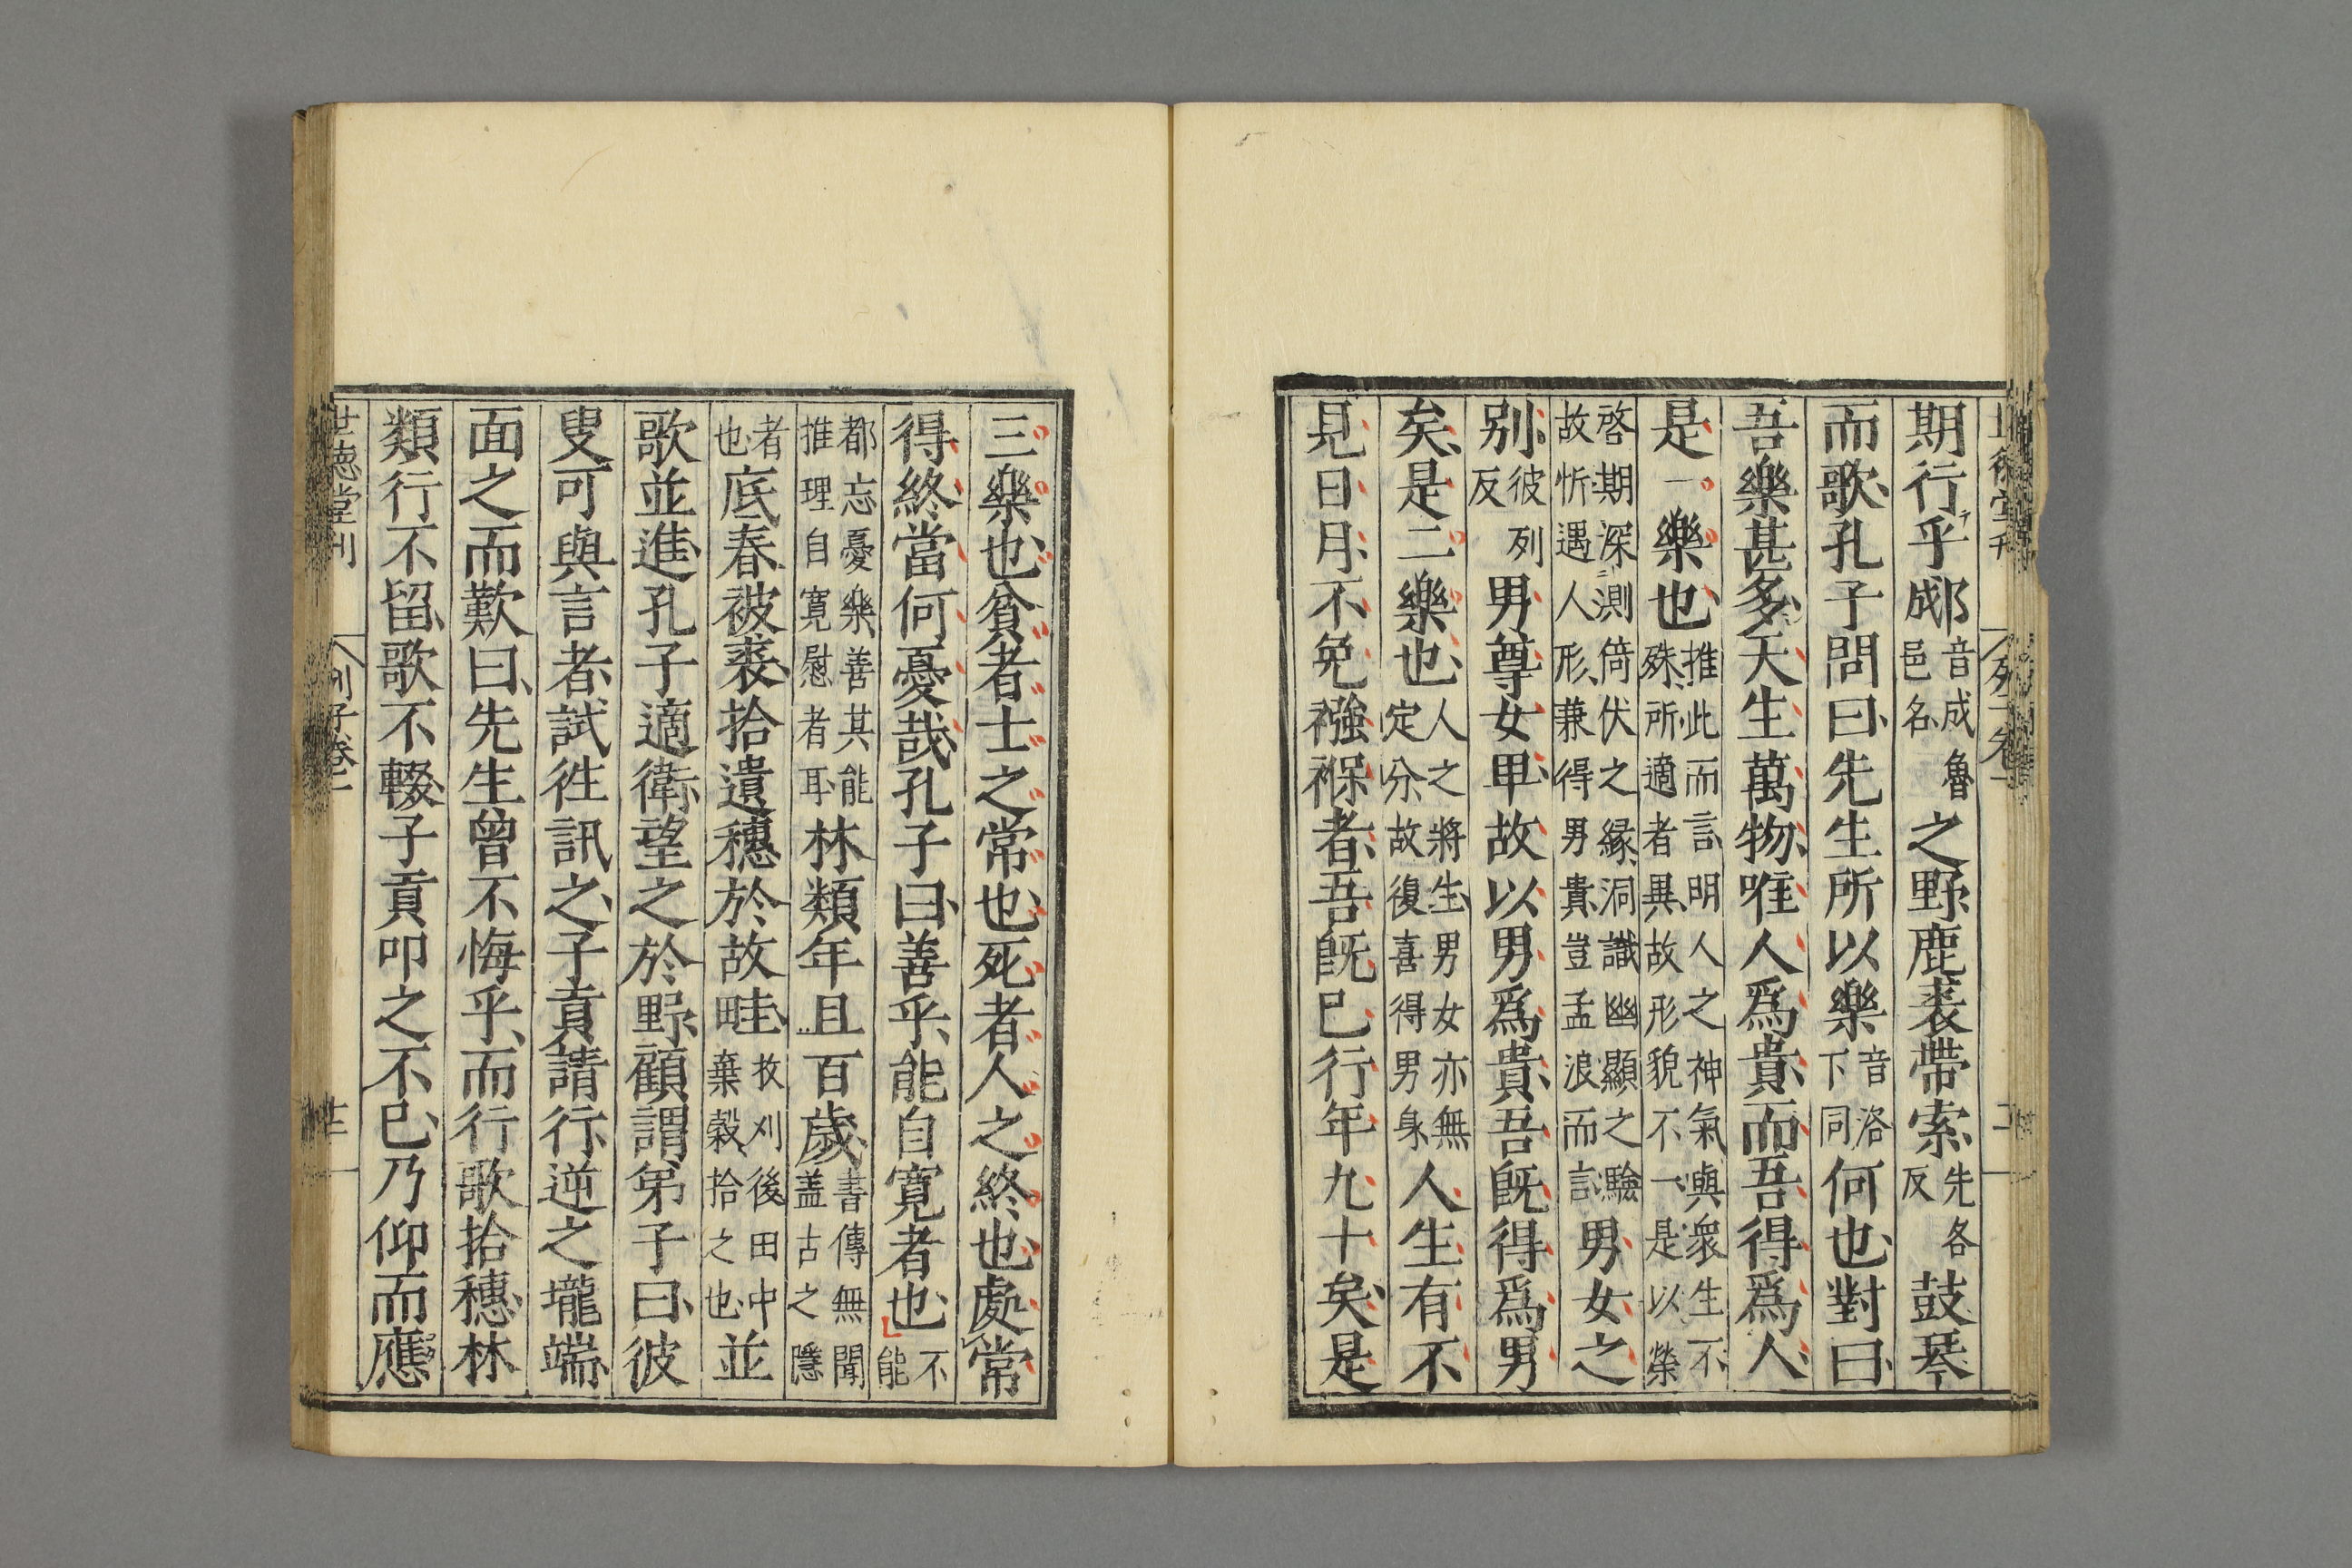 期行乎郕音成魯邑名之野鹿裘帶索先各反鼓琴
而歌孔子問曰先生所以樂音洛下同何也對曰
吾樂甚多天生萬物唯人爲貴而吾得爲人
是一樂也推此而言明人之神氣與衆生不殊所適者異故形貌不一是以榮
啓期深測倚伏之縁洞識幽顯之驗故忻遇人形兼得男貴豈孟浪而言男女之
别彼列反男尊女卑故以男爲貴吾旣得爲男
矣是二樂也人之將生男女亦無定分故復喜得男身人生有不
見日月不免襁褓者吾旣已行年九十矣是
三樂也貧者士之常也死者人之終也處常
得終當何憂哉孔子曰善乎能自寛者也不能
都忘憂樂善其能推理自寛慰者耳林類年且百歲書傳無聞蓋古之隱
者也底春被裘拾遺穗於故畦收刈後田中棄榖拾之也並
歌並進孔子適衛望之於野顧謂弟子曰彼
叟可與言者試往訊之子貢請行逆之壠端
面之而歎曰先生曾不悔乎而行歌拾穗林
類行不留歌不輟子貢叩之不已乃仰而應
世德堂刊
列子卷一